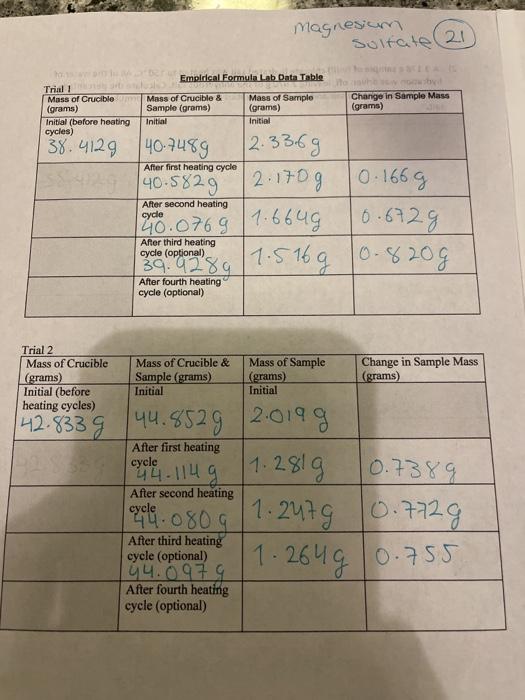 Magnesium
Sulfate 21
Empirical Formula Lab Data Table
Trial 1
Mass of Crucible (grams) Mass of Crucible & Sample (grams) Mass of Sample (grams) Change in Sample Mass (grams)
Initial (before heating cycles) Initial Initial
38.412g 40.748g 2.336g
After first heating cycle
40.582g 2.170g 0.166g
After second heating cycle
40.076g 1.664g 0.672g
After third heating cycle (optional)
39.928g 1.516g 0.820g
After fourth heating cycle (optional)
Trial 2
Mass of Crucible (grams) Mass of Crucible & Sample (grams) Mass of Sample (grams) Change in Sample Mass (grams)
Initial (before heating cycles) Initial Initial
42.833g 44.852g 2.019g
After first heating cycle
44.114g 1.281g 0.738g
After second heating cycle
44.080g 1.247g 0.772g
After third heating cycle (optional)
44.097g 1.264g 0.755
After fourth heating cycle (optional)